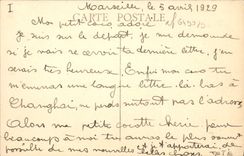 I
Marseille, le 5 avril 1929
CARTE POSTALE
Mon petit coco adoré
Je suis sur le départ, je me demande
si je vais recevoir ta dernière lettre, j'en
serais très heureuse. Enfin mon coco tu
m'enverras une longue lettre là-bas à
Changhaï, ne perds surtout pas l'adresse
Alors ma petite chérie pour
beaucoup à moi tu auras le plus souvent
possible de mes nouvelles et je t'apporterai de